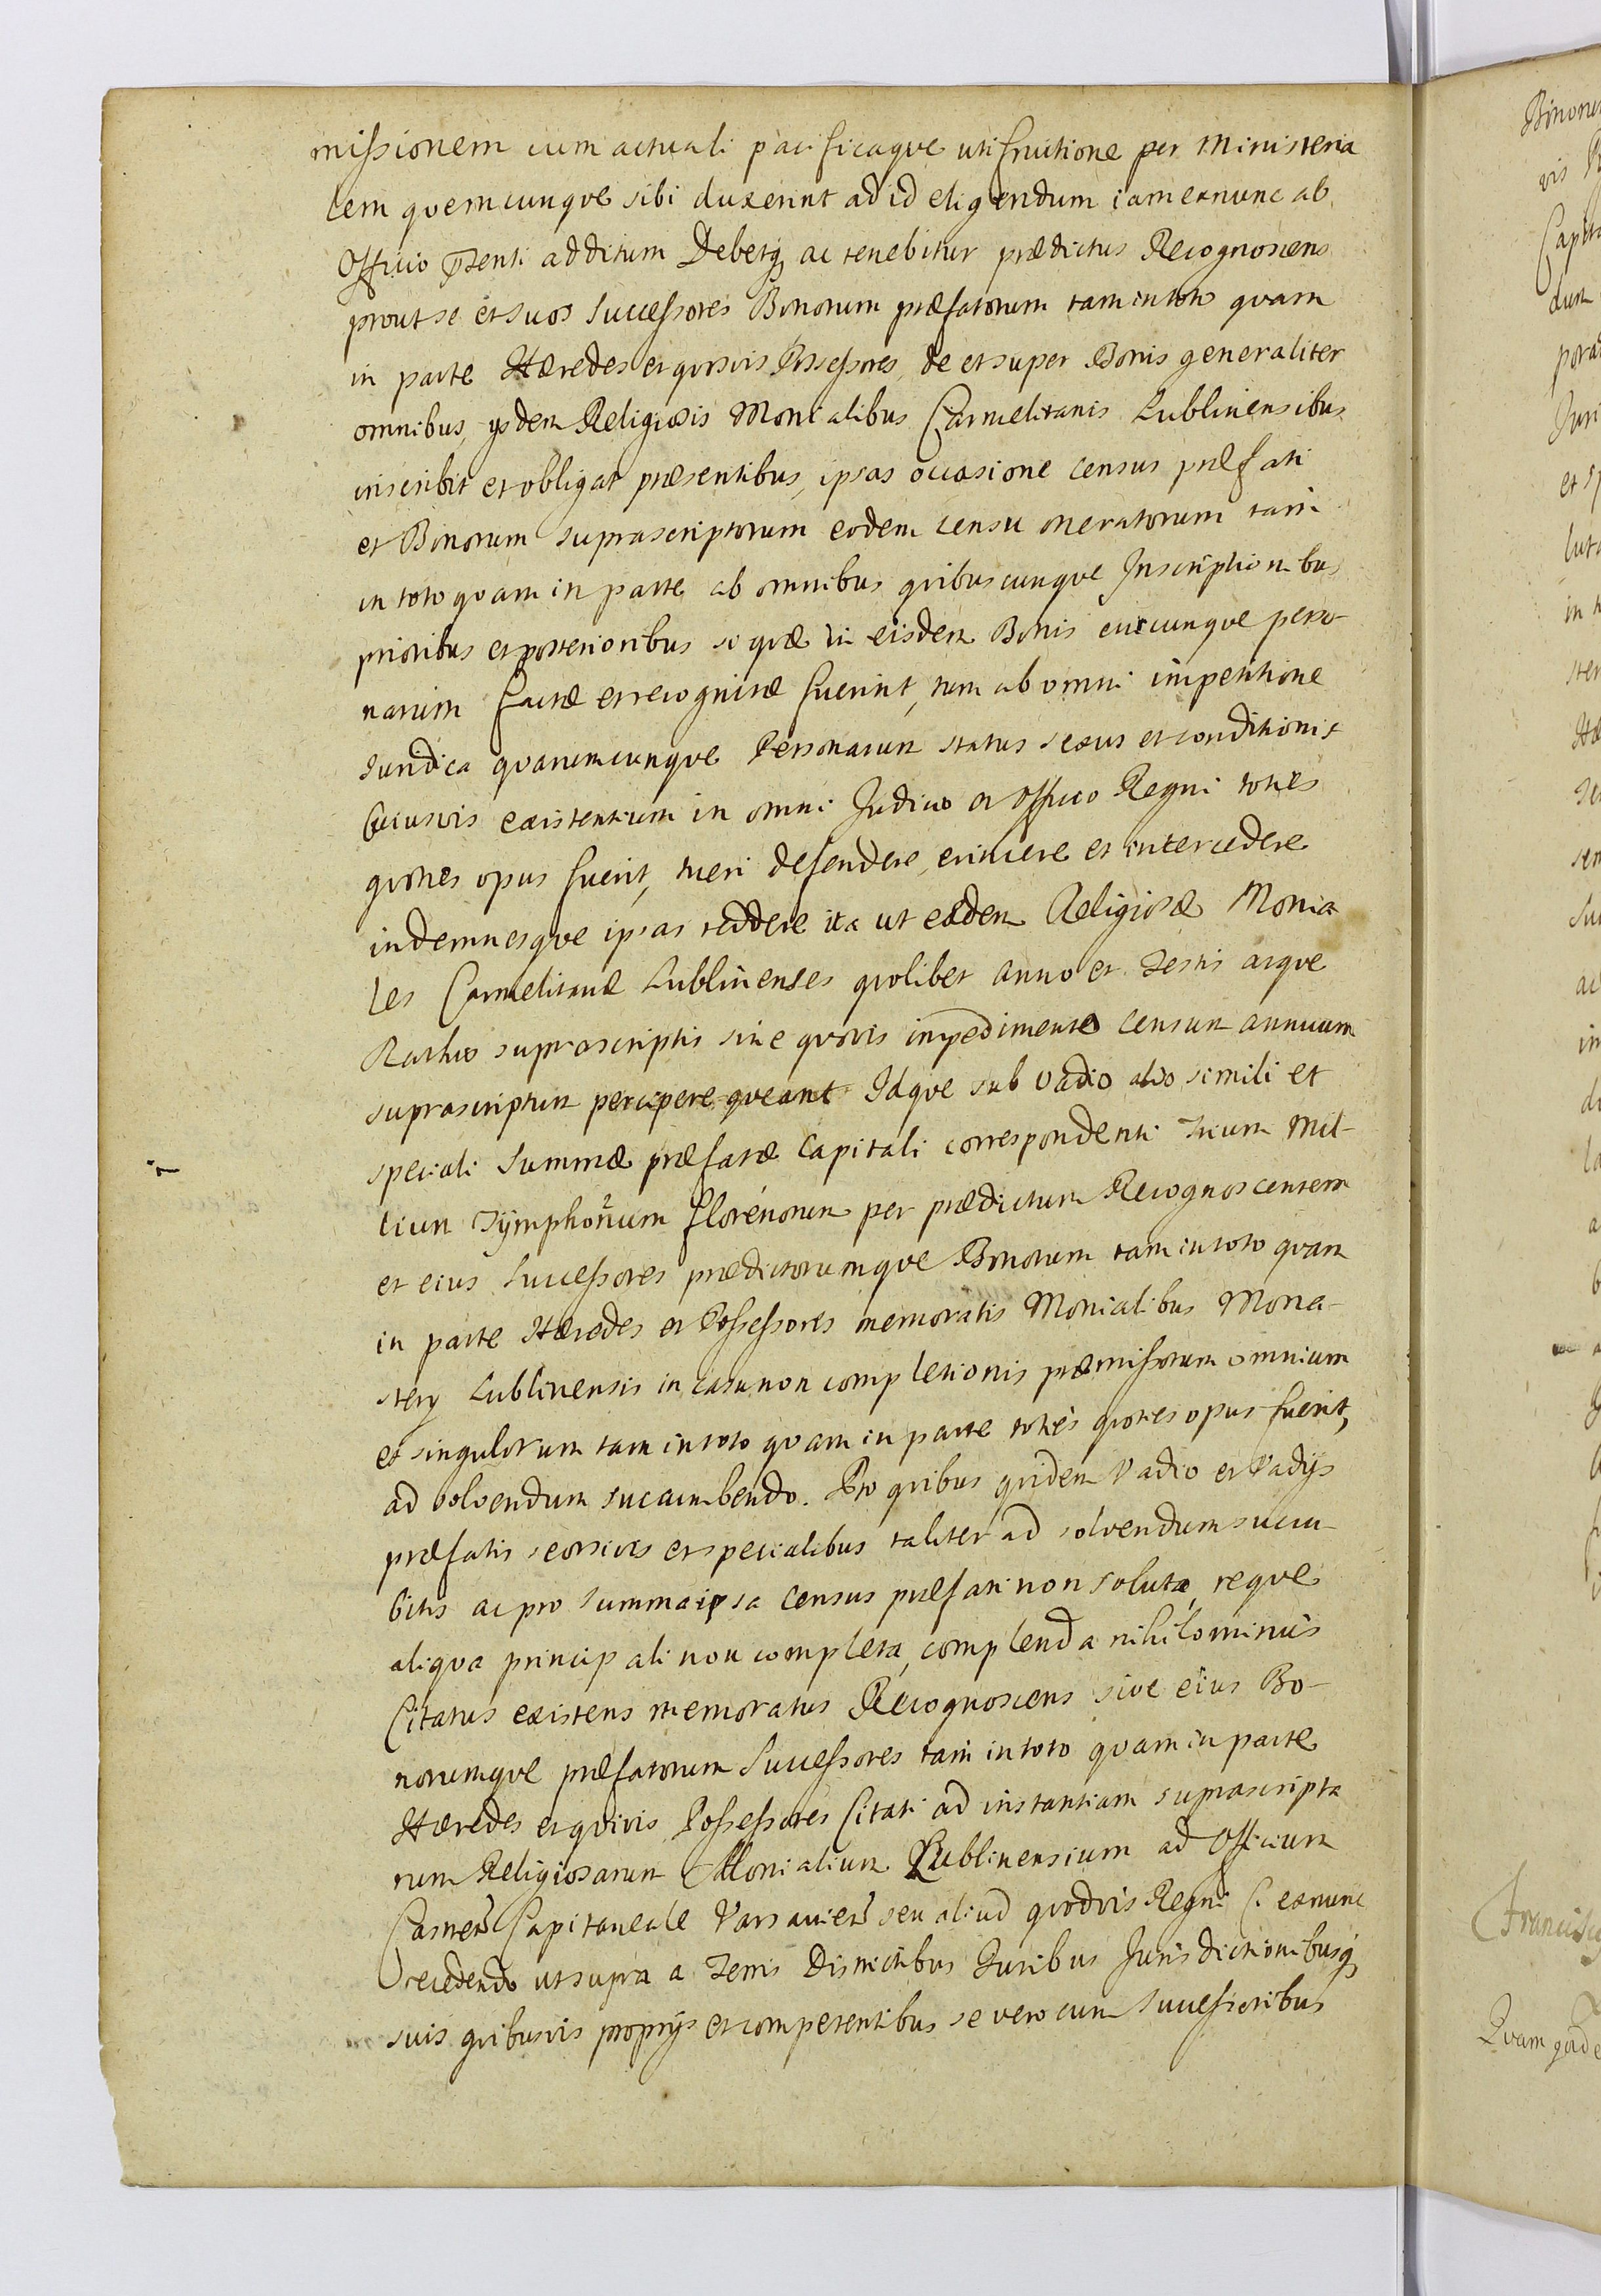 missionem cum actuali pacificaque utifruitione per Ministeria
lem quemcunque sibi duxerint ad id eligendum iam exnunc ab
Officio Pñti additum Debetq ac tenebitur prædictus Recognoscens
prout se et suos Successores Bonorum præfatorum tam in toto quam
in parte Hæredes et quosvis Possessores, de et super Bonis generaliter
omnibus, ysdem Religiosis Monialibus Carmelitanis Lublinensibus
inscribit et obligat præsentibus, ipsas occasione census præfati
et Bonorum suprascriptorum eodem censu oneratorum tam
in toto quam in parte ab omnibus quibuscunque Inscriptionibus
prioribus et posterioribus si quæ in eisdem Bonis cuicunque perso-
narum factæ et recognitæ fuerint, tum ab omni impetitione
Iuridica quarumcunque Personarum status sexus et conditionis
Cuiusvis existentium in omni Judicio et Officio Regni toties
quoties opus fuerit, tueri defendere, evincere et intercedere
indemnesque ipsas reddere ita ut eædem Religiosæ Monia
les Carmelitanæ Lublinenses quolibet anno et Festis atque
Rathis suprascriptis sine quovis impedimento Censum annuum
suprascriptum percipere queant Idque sub vadio alio simili et
speciali Summæ præfatæ Capitali correspondenti Trium Mil-
lium Symphonum florenorum per prædictum Recognoscentem
et eius Successores prædictorumque Bonorum tam in toto quam
in parte Hæredes et Possessores memoratis Monialibus Mona-
stery Lublinensis in casu non completionis præmissorum omnium
et singulorum tam in toto quam in parte toties quoties opus fuerit,
ad solvendum succumbendo. Pro quibus quidem Vadio et Vadijs
præfatis seorsivis et specialibus taliter ad solvendum succu-
bitis ac pro Summa ipsa Census præfati non soluta, reque
aliqua principali non completa, complenda nihilominus
Citatus existens memoratus Recognoscens sive eius Bo-
norumque præfatorum Successores tam in toto quam in parte
Hæredes et quivis Possessores Citati ad instantiam suprascripta
rum Religiosarum Monialium Lublinensium ad Officium
Castren Capitaneale Varsavien seu aliud quodvis Regni C. exnunc
recedendo ut supra a Terris Districtibus Iuribus Jurisdictionibusq
suis quibusvis proprijs et competentibus se vero cum Successoribus